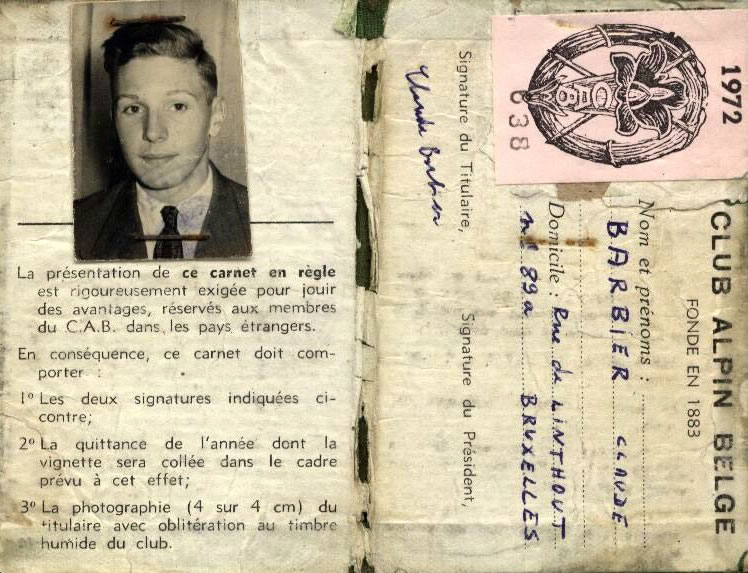 La présentation de ce carnet en règle
est rigoureusement exigée pour jouir
des avantages, réservés aux membres
du C.A.B. dans les pays étrangers.
En conséquence, ce carnet doit com-
porter :
1° Les deux signatures indiquées ci-
contre;
2° La quittance de l'année dont la
vignette sera collée dans le cadre
prévu à cet effet;
3° La photographie (4 sur 4 cm) du
titulaire avec oblitération au timbre
humide du club.
1972
638
CLUB ALPIN BELGE
FONDE EN 1883
Nom et prénoms :
BARBIER CLAUDE
Domicile : Rue de LINTHOUT
n° 89a BRUXELLES
Signature du Titulaire, Signature du Président,
Claude Barbier